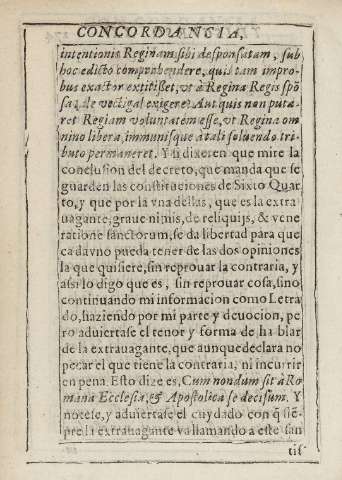 CONCORDANCIA,
intentionis Reginam sibi desponsatam, sub
hoc edicto comprehendere, quis tam impro-
bus exactor extitisset, vt à Regina Regis spõ
sa, de vectigal exigere? Aut quis non puta-
ret Regiam voluntatem esse, vt Regina om
nino libera, immunisque à tali soluendo tri-
buto permaneret. Y si dixeren que mire la
conclusion del decreto, que manda que se
guarden las constituciones de Sixto Quar
to, y que por la vna dellas, que es la extra
uagante, graue nimis, de reliquijs, & vene
ratione sanctorum, se da libertad para que
cada vno pueda tener de las dos opiniones
la que quisiere, sin reprouar la contraria, y
assi lo digo que es, sin reprouar cosa, sino
continuando mi informacion como Letra
do, haziendo por mi parte y deuocion, pe
ro aduiertase el tenor y forma de hablar
de la extrauagante, que aunque declara no
pecar el que tiene la contraria, ni incurrir
en pena. Esto dize es, Cum nondum sit à Ro
mana Ecclesia, & Apostolica se decisum. Y
notese, y aduiertase el cuydado con q̃ siẽ-
pre la extrauagante va llamando a este san
tis-